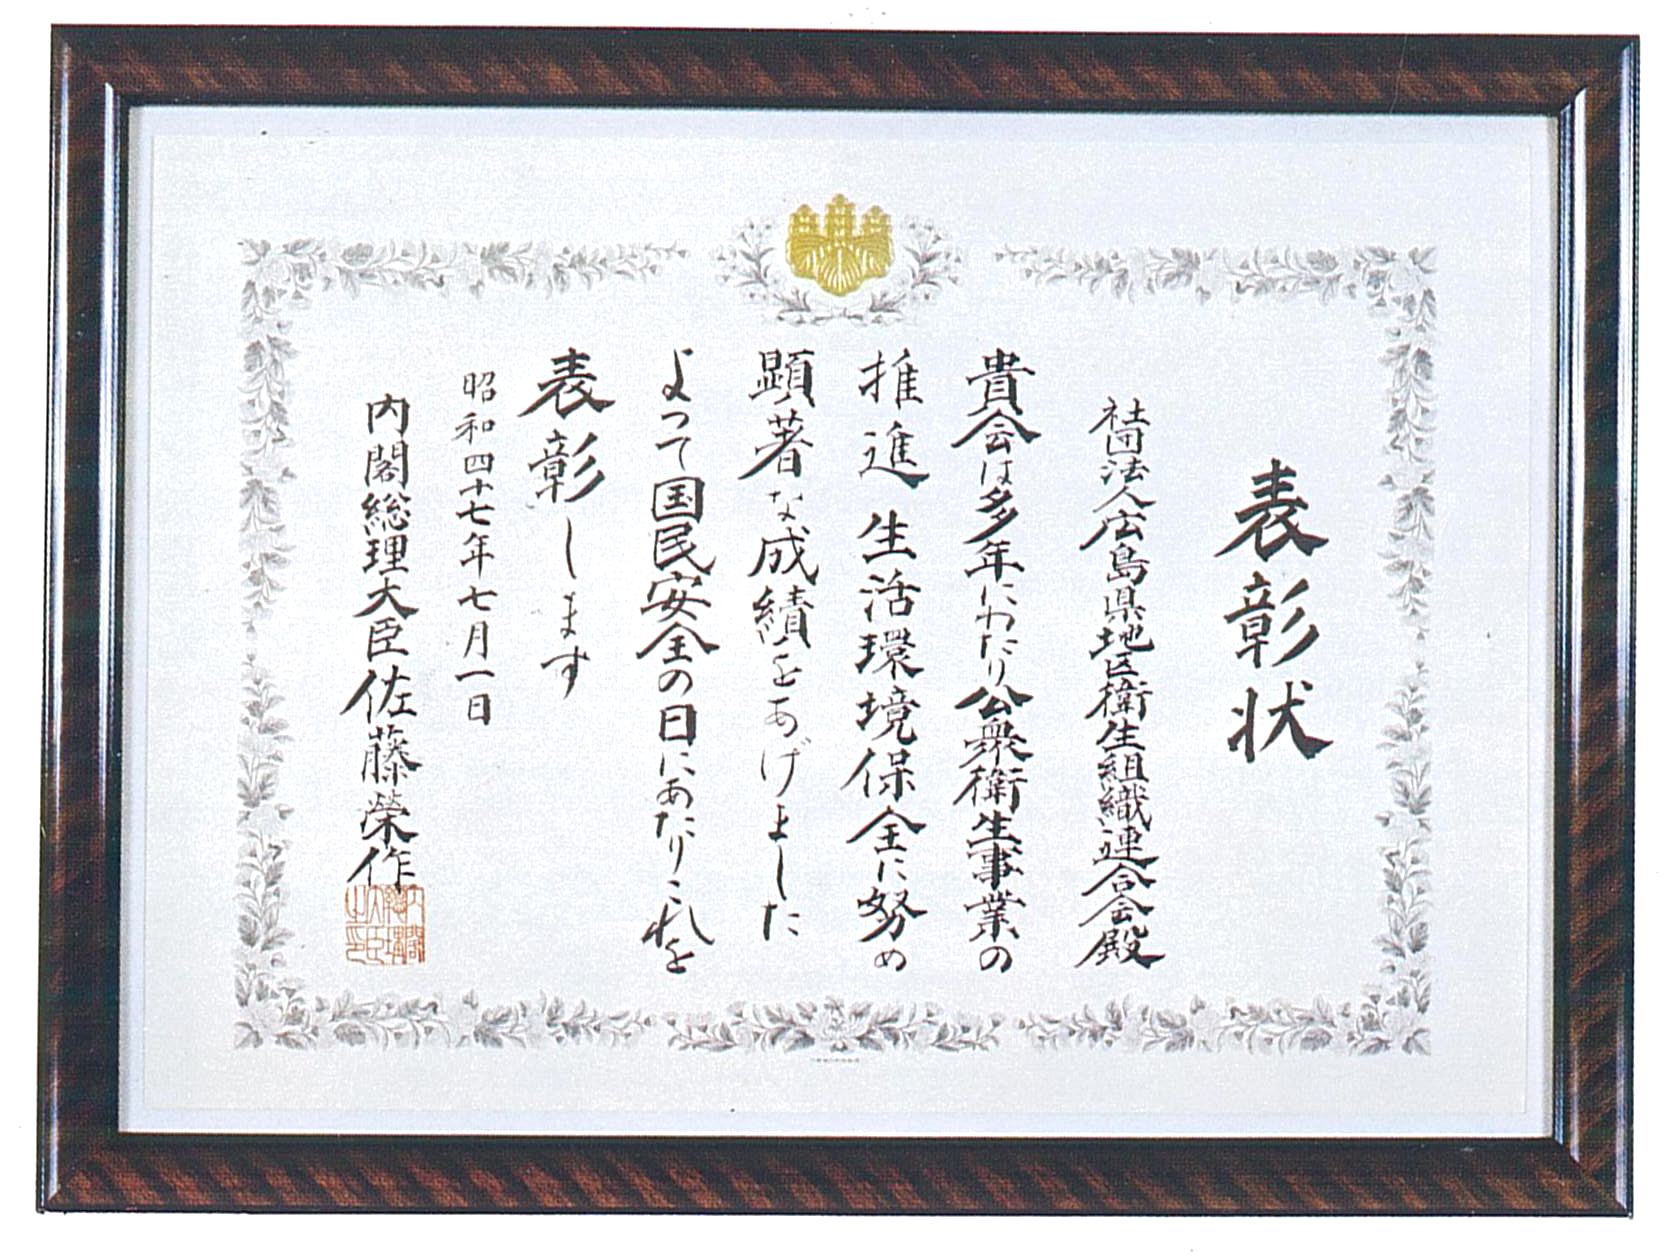 表彰状
社団法人広島県地区衛生組織連合会殿
貴会は多年にわたり公衆衛生事業の
推進生活環境保全に努め
顕著な成績をあげました
よって国民安全の日にあたりこれを
表彰します
昭和四十七年七月一日
内閣総理大臣佐藤榮作
内閣総理大臣之印